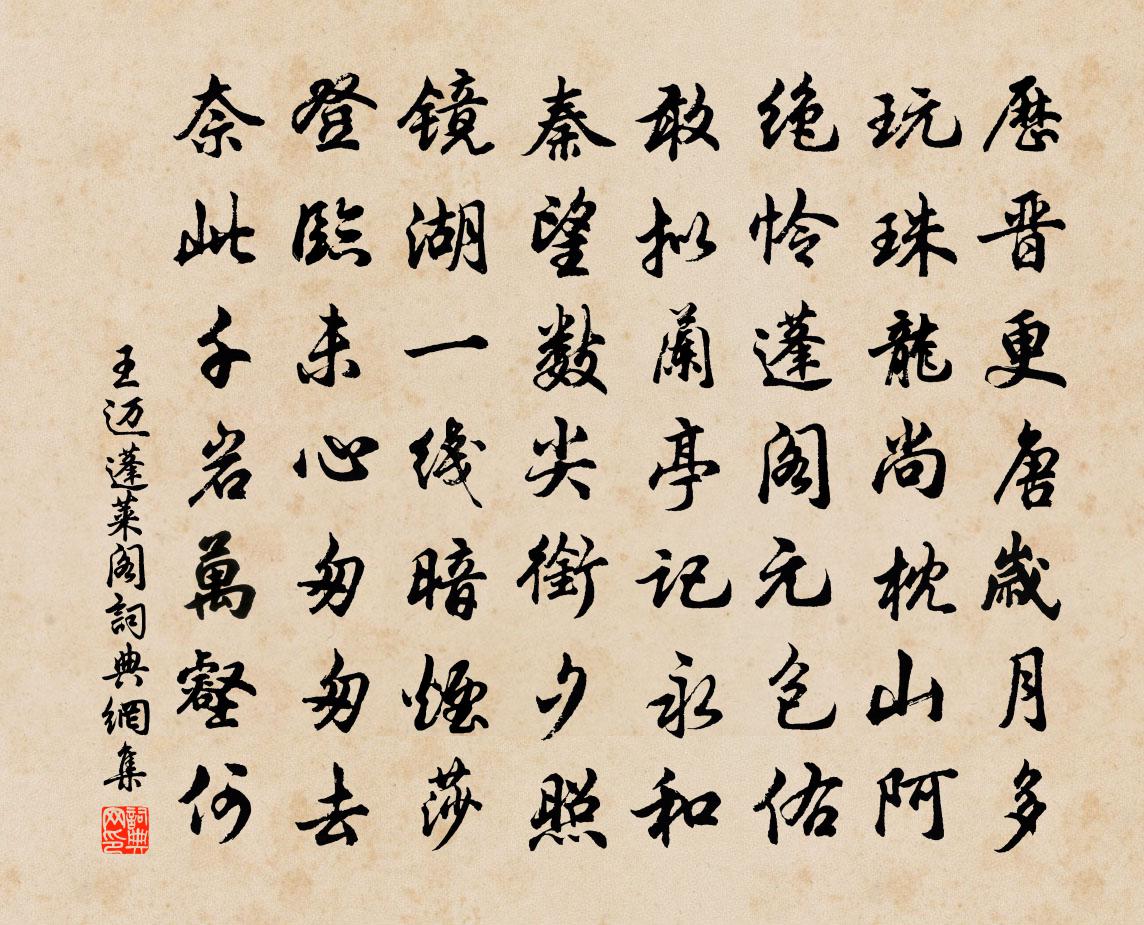 歷晋更唐歲月多
玩珠龍尚枕山阿
绝怜蓬阁元包佑
敢拟蘭亭記永和
秦望數尖銜夕照
镜湖一綫暗煙莎
登臨未心匆匆去
奈此千岩萬壑何
王迈蓬莱阁詞典網集
詞典网印